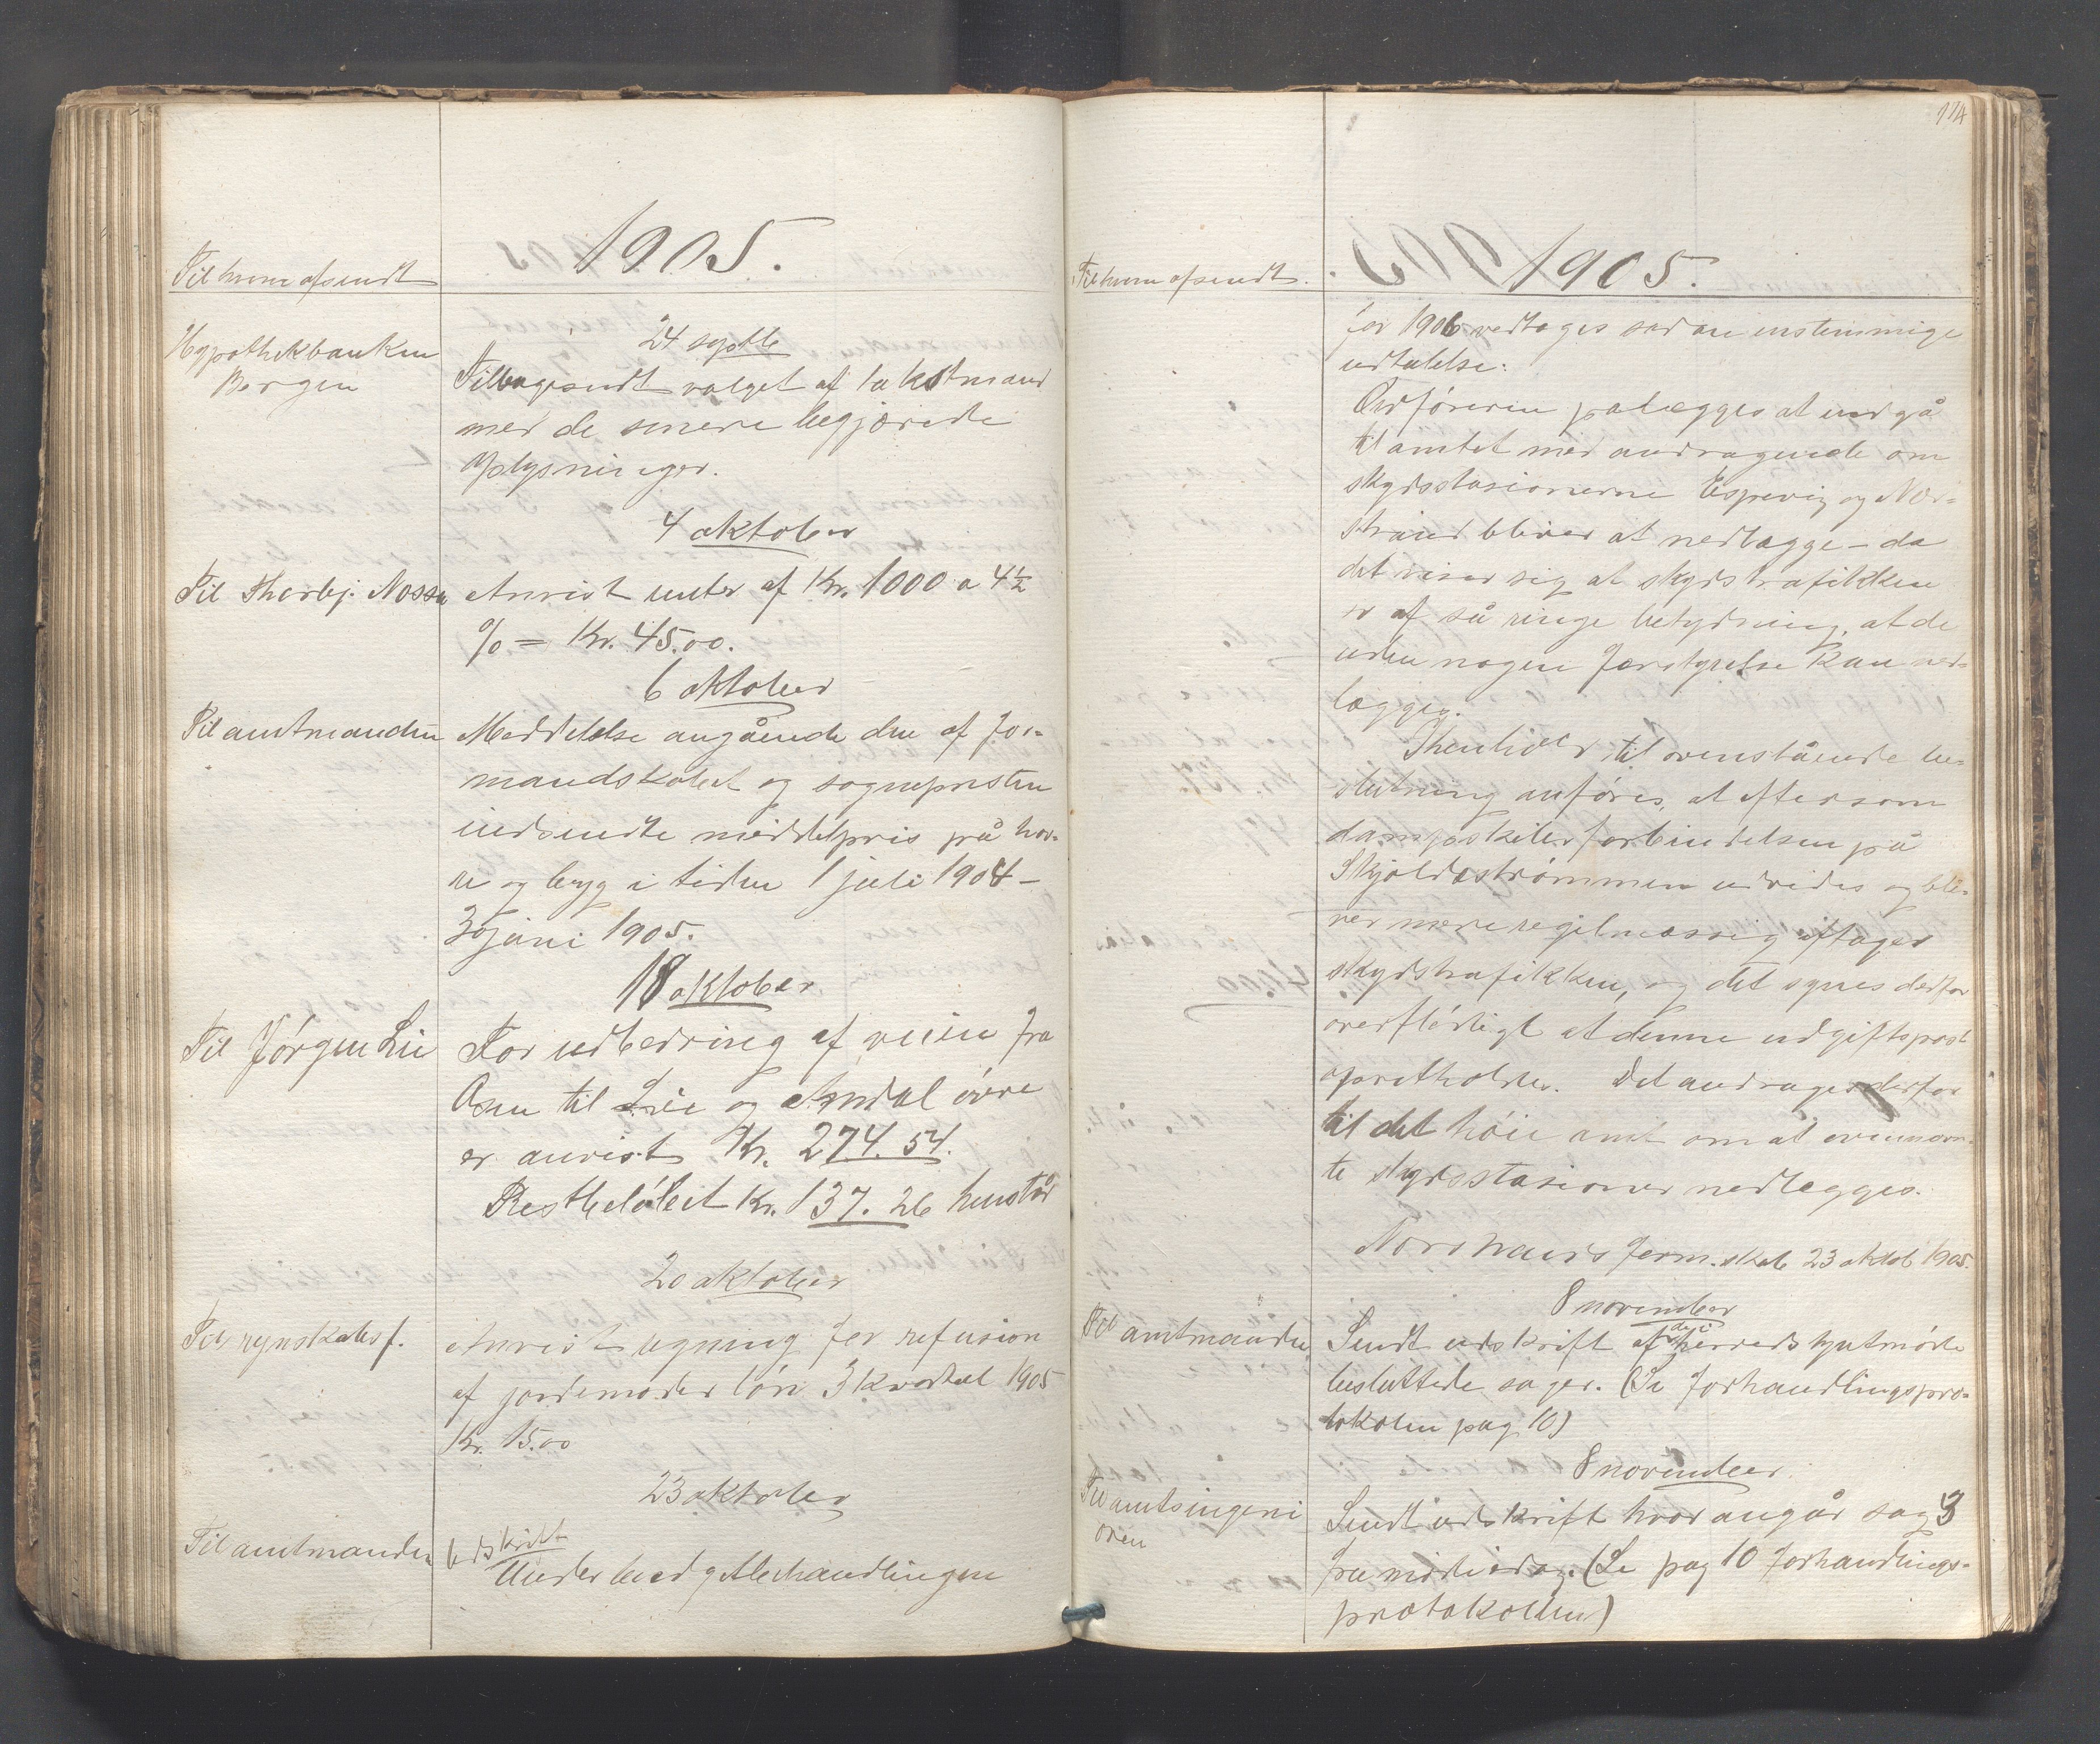 1905.
Til hvem afsendt
24 septb
Hypothekbanken
Bergen
Tilbagesendt valget af takstmænd
med de senere begjærede
oplysninger.
4 oktober
Til Thorbj. Nossa
Anvist renter af Kr. 1000 a 4½
% = Kr. 45.00.
6 oktober
Til amtmanden
Meddelelse angående den af for-
mandskabet og sognepresten
indsendte middelpris på hav-
re og byg i tiden 1 juli 1904 -
30 juni 1905.
18 oktober
Til Jørgen Lie
For udbedring af veien fra
Osen til Lie og Amdal øvre
er anvist Kr. 274.54.
Restbeløbet Kr. 137.26 henstår
20 oktober
Til rynskabsf.
Anvist regning for refusion
af jordemoder løn 3 kvartal 1905
Kr. 15.00
23 oktober
Til amtmanden
Udskrift
Under budgetbehandlingen
174
1905.
Til hvem afsendt.
for 1906 vedtoges sådan enstemmige
udtalelse:
Ordføreren pålægges at indgå
til amtet med andragende om
skydsstasionerne Espevig og Nær-
strand bliver at nedlægge - da
det viser sig at skydstrafikken
er af så ringe betydning, at de
uden nogen forstyrelse kan ned-
lægges.
I henhold til ovenstående be-
slutning anføres, at eftersom
dampskibsforbindelsen på
Skjoldestrømmen udvides og bli-
ver mere regelmæssig aftager
skydstrafikken, og det synes derfor
overflødigt at denne udgiftspost
opretholdes. Det andrages derfor
til det høie amt om at ovennævn-
te skydsstasioner nedlægges.
Nærstrands form.skab 23 oktob 1905.
8 november
Til amtmanden
Sendt udskrift af de i herredsstyremøde
besluttede sager. (Se forhandlingspro-
tokolen pag 10)
8 november
Til amtsingeni
ören
Sendt udskrift hvad angår sag 3
fra møde idag. (Se pag 10 forhandlings-
protokollen)